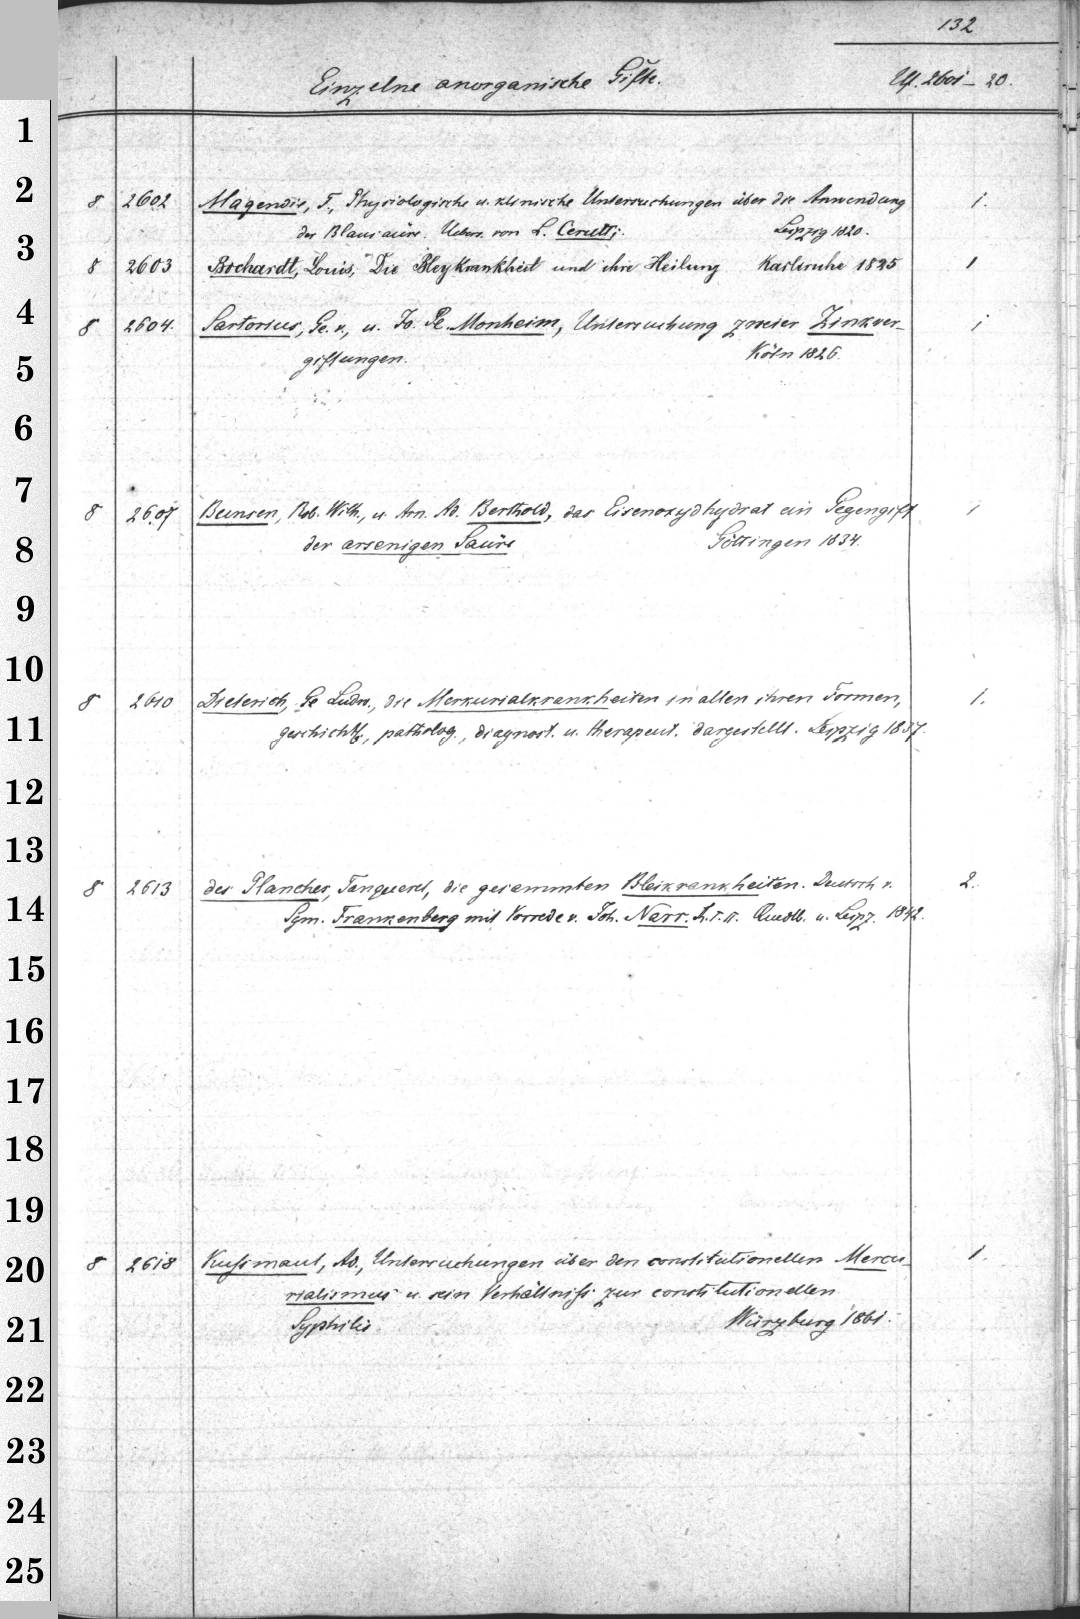 132
Einzelne anorganische Gifte. Uf. 2601-20.
1
2
8 2602 Magendie, F., Physiologische u. klinische Untersuchungen über die Anwendung 1.
der Blausäure. Uebers. von L. Cerutti. Leipzig 1820.
3
8 2603 Bochardt, Louis, Die Bleykrankheit und ihre Heilung Karlsruhe 1825 1
4
8 2604. Sartorius, Ge. v., u. Jo. Pe. Monheim, Untersuchung zweier Zinkver-
giftungen. Köln 1826. 1
5
6
7
8 2607 Bunsen, Rob. Wilh., u. Arn. Ad. Berthold, das Eisenoxydhydrat ein Gegengift 1
der arsenigen Säure Göttingen 1834.
8
9
10
8 2610 Dieterich, Ge Ludw., die Merkurialkrankheiten in allen ihren Formen, 1.
geschichtl., patholog., diagnost. u. therapeut. dargestellt. Leipzig 1837.
11
12
13
8 2613 des Planches, Tanquerel, die gesammten Bleikrankheiten. Deutsch v. 2.
Sgm. Frankenberg mit Vorrede v. Joh. Narr. Quedlb. u. Leipz. 1842.
14
15
16
17
18
19
8 2618 Kußmaul, Ad., Untersuchungen über den constitutionellen Mercu- 1.
20
rialismus u. sein Verhältniß zur constitutionellen
Syphilis. Würzburg 1861.
21
22
23
24
25